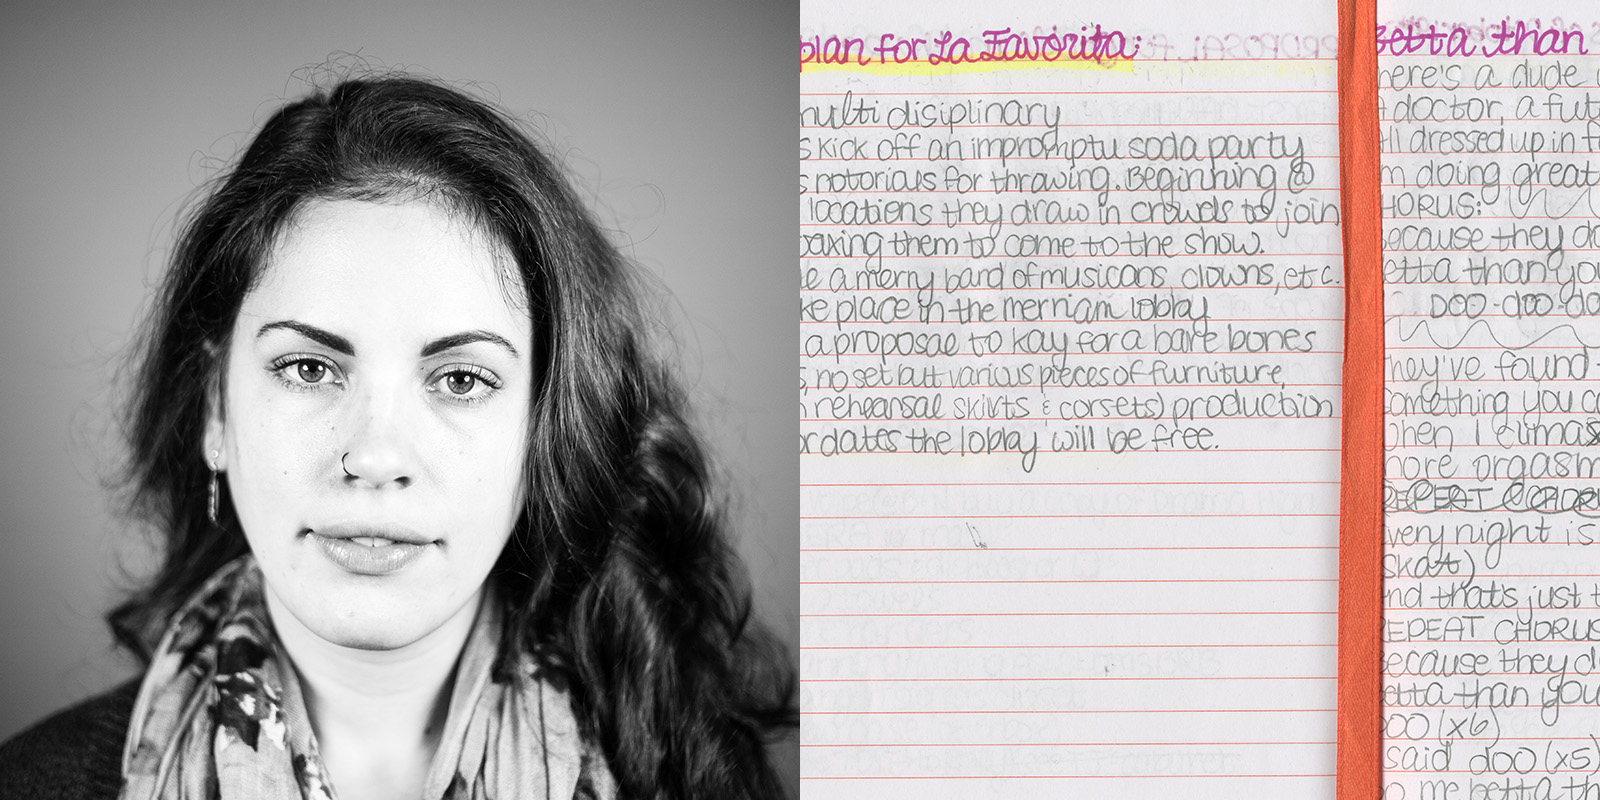 plan for La Favorita:
multi disiplinary
s kick off an impromptu soda party
s notorious for throwing. Beginning @
locations they draw in crowds to join
oaxing them to come to the show.
e a merry band of musicans, clowns, etc.
ke place in the merriam lobby
a proposae to kay for a bare bones
s no set but various pieces of furniture,
n rehearsal skirts & corsets) production
or dates the lobby will be free.
Betta than
here's a dude
doctor, a fut
ll dressed up in f
m doing great
HORUS:
Because they do
etta than you
DOO-doo-do
They've found
Something you c
When I climax
more orgasm
REPEAT CHORU
very night is
skat)
nd thats just t
REPEAT CHORUS
Because they d
etta than you
DOO (x6)
said doo (x5)
o me betta th